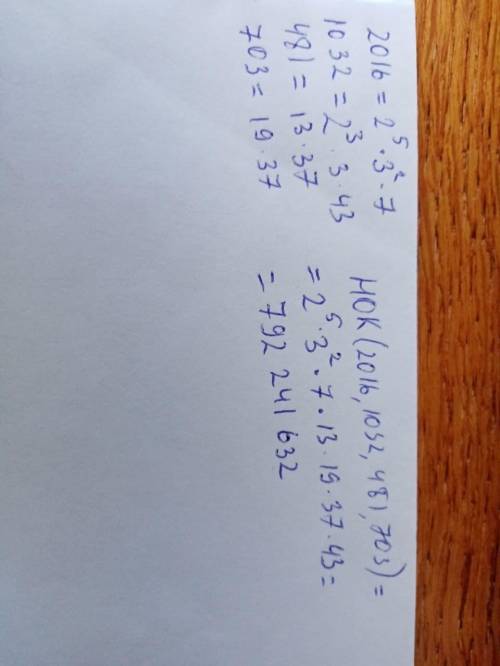 2016 = 2⁵ · 3² · 7
1032 = 2³ · 3 · 43
481 = 13 · 37
703 = 19 · 37
НОК(2016, 1032, 481, 703) =
= 2⁵ · 3² · 7 · 13 · 19 · 37 · 43 =
= 792 241 632